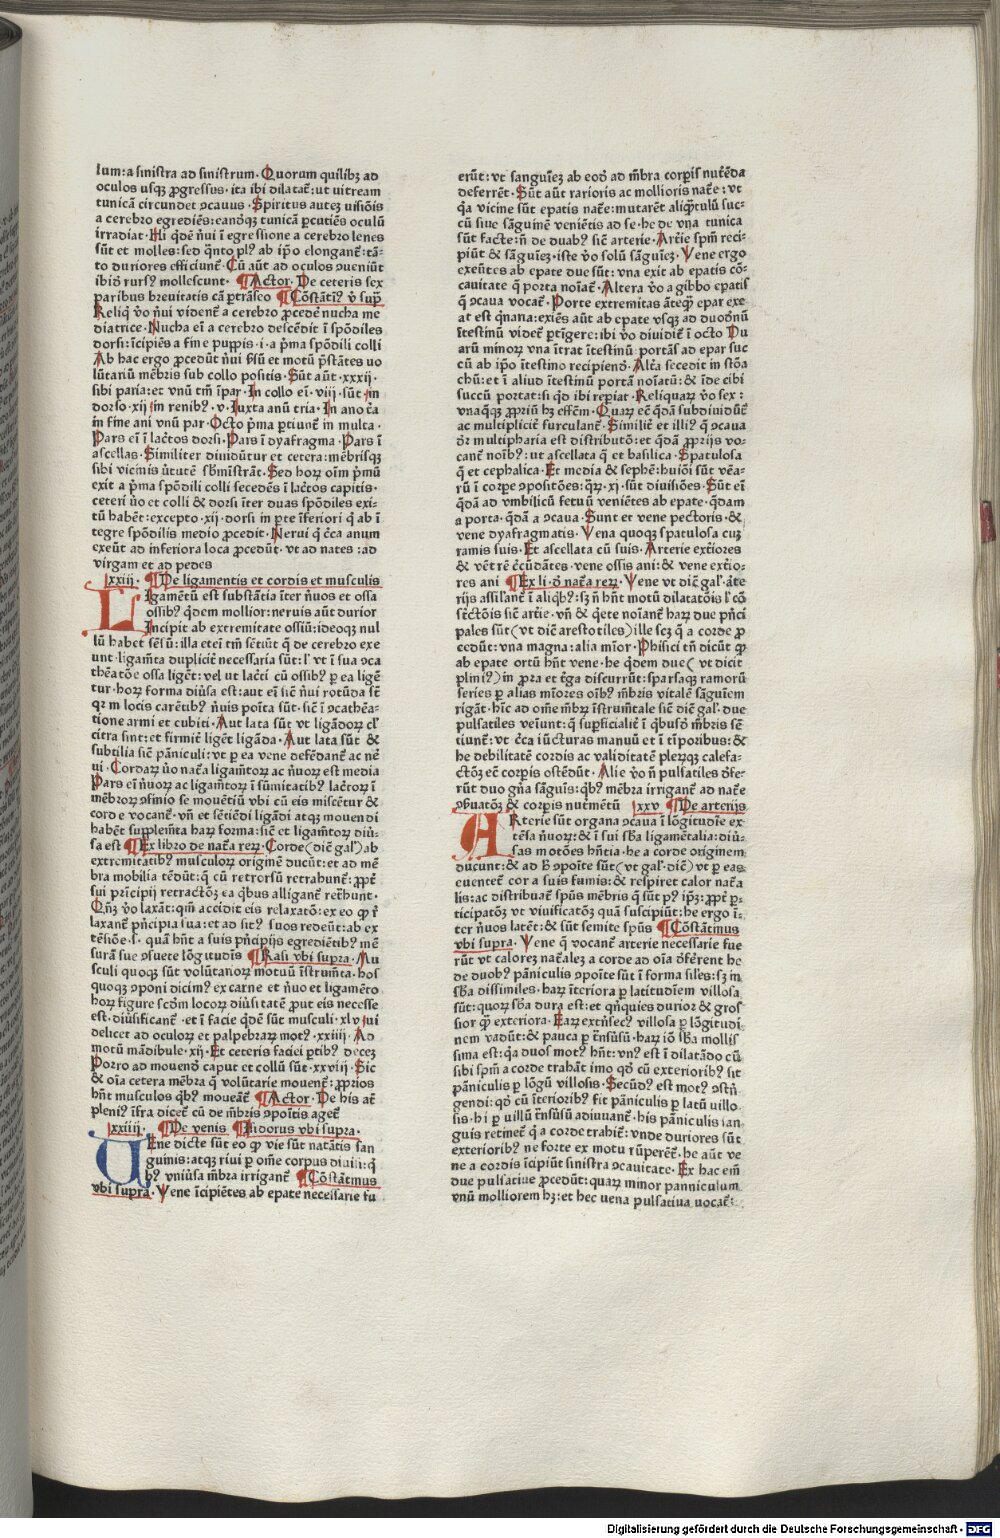 lum: a sinistra ad sinistrum. Quorum quilibꝫ ad
oculos usqꝫ ꝓgressus. ita ibi dilatat̃: ut uitream
tunicā circundet ꝯcauus. Spiritus auteꝫ uisiōis
a cerebro egrediēs: eandqꝫ tunicā ꝑcutiēs oculū
irradiat. Hi qͥdē ñui ī egressione a cerebro lenes
sūt et molles: sed qͣnto plꝰ ab ip̄o elongant̃: tā-
to duriores efficiunt̃. Cū aūt ad oculos ꝯueniūt
ibidē rursꝰ mollescunt. ¶Actor. De ceteris sex
paribus breuitatis cā ꝑtrāseo ¶Cōstātiꝰ v̄ sup̄
Reliq̄ v̄o ñui vident̃ a cerebro ꝓcede nucha me
diatrice. Nucha eī a cerebro descēdit ī spōdiles
dorsi: īcipiēs a fine puppis. i. a pͥma spōdili colli
Ab hac ergo ꝓcedūt ñui sēsū et motū p̄stātes uo
lūtariū mēbris sub collo positis. Sūt aūt. xxxij.
sibi paria: et vnū tm̄ īpar. In collo eī. viij. sūt. in
dorso. xij in renibꝰ. v. iuxta anū tria. In ano c̄a
in fine ani vnū par. Octo pͥma ꝑtiunt̃ in multa.
Pars eī ī lac̄tos dorsi. Pars ī dyafragma. Pars ī
ascellas. Similiter diuidūtur et cetera: mēbrisqꝫ
sibi vicinis ūtutē sb̄mīstrāt. Sed horꝫ oīm pͥmū
exit a pͥma spōdili colli secedēs ī lac̄tos capitis.
ceteri ūo et colli & dorsi īter duas spōdiles exi-
tū habēt: excepto. xij. dorsi in ꝑte īferiori q̄ ab ī
tegre spōdilis medio ꝓcedit. Nerui q̄ c̄ca anum
exeūt ad inferiora loca ꝓcedūt. vt ad nates: ad
virgam et ad pedes
xxiij. ¶De ligamentis et cordis et musculis
Ligamētū est substātia īter ñuos et ossa
ossibꝰ qͥdem mollior: neruis aūt durior
Incipit ab extremitate ossiū: ideoqꝫ nul
lū habet sēsū: illa eteī tm̄ sētiūt q̄ de cerebro exe
unt. ligam̄ta duplicit̃ necessaria sūt: l̃ vt ī sua ꝯca
thēatōe ossa ligēt: vel ut lac̄ti cū ossibꝰ ꝑ ea ligē
tur. horꝫ forma diūsa est: aut eī sic̄ ñui rotūda st̄
qꝛ m locis carētibꝰ ñuis poīta sūt. sic̄ ī ꝯcathēa-
tione armi et cubiti. Aut lata sūt vt ligādorꝫ cl̃
citra sint: et firmit̃ ligēt ligāda. Aut lata sūt &
subtilia sic̄ pāniculi: vt ꝑ ea vene defēdant̃ ac ne᷑
ui. Cordarꝫ ūo nat̃a ligam̄torꝫ ac ñuorꝫ est media
Pars eī ñuorꝫ ac ligam̄torꝫ ī sūmitatibꝰ lac̄torꝫ ī
mēbrorꝫ ꝯfinio se mouētiū vbi cū eis miscētur &
corde vocant̃. vn̄ et sētiēdi ligādi atqꝫ mouendi
habēt supplem̄ta harꝫ forma: sic̄ et ligam̄torꝫ diū-
sa est ¶Ex libro de nat̃a rerꝫ. Corde (dic̄ gal̃) ab
extremitatibꝰ musculorꝫ originē ducūt: et ad mē
bra mobilia tēdūt: q̄ cū retrorsū retrahunt̃: ꝓpt̃
sui pͥncipij retractōꝫ ea qͥbus alligant̃ ret̃hunt.
Qn̄ꝫ v̄o laxāt: qm̄ accidit eis relaxatō: ex eo ꝙ ī
laxant̃ pͥncipia sua: et ad sitꝰ suos redeūt: ab ex
tēsiōe. s. quā hn̄t a suis pͥncipijs egrediētibꝰ mē
surā sue ꝯsuete lōgitudīs ¶Rasi vbi supra. Mu
sculi quoqꝫ sūt volūtariorꝫ motuū īstrum̄ta. hos
quoqꝫ ꝯponi dicimꝰ ex carne et ñuo et ligamēto
horꝫ figure scd̄m locorꝫ diūsitatē ꝓut eis necesse
est. diūsificant̃. et ī facie qͥdē sūt musculi. xlv. ui
delicet ad oculorꝫ et palpebrarꝫ motꝰ. xxiiij. Ad
motū mādibule. xij. Et ceteris faciei ꝑtibꝰ deceꝫ
Porro ad mouendū caput et collū sūt. xxviij. Sic
& oīa cetera mēbra q̄ volūtarie mouent̃: ꝓprios
hn̄t musculos qͥbꝰ moueāt̃ ¶Actor. De his at̃
pleniꝰ īfra dicet̃ cū de m̄bris ꝯpoītis aget̃
xxiiij. ¶De venis ¶Isidorus vbi supra.
Uene dicte sūt eo ꝙ vie sūt natātis san
guinis: atqꝫ riui ꝑ om̄e corpus diuisi: qͥ
bꝰ vniūsa m̄bra irrigant̃ ¶Cōstātinus
vbi supra. Vene īcipiētes ab epate necessarie fu
erūt: vt sanguīeꝫ ab eodē ad m̄bra corꝑis nut̃ēda
deferrēt. Sūt aūt rarioris ac mollioris nat̃e: vt
qͣ vicine sūt epatis nat̃e: mutarēt aliqͣtulū suc-
cū siue sāguinē veniētis ad se. he de vna tunica
sūt facte: n̄ de duabꝰ sic̄ arterie. Art̃ie sp̄m reci-
piūt & sāguieꝫ: iste v̄o solū sāguieꝫ. Vene ergo
exeūtes ab epate due sūt: vna exit ab epatis cō-
cauitate q̄ porta noīat̃. Altera v̄o a gibbo epatis
q̄ ꝯcaua vocat̃. Porte extremitas āteqͣ epar exe
at est qͥnaria: exiēs aūt ab epate vsqꝫ ad duodnū
ītestinū videt̃ ꝑtīgere: ibi v̄o diuidit̃ ī octo Du
arū minorꝫ vna ītrat ītestinū portās ad epar suc
cū ab ip̄o ītestino recipiendū. Alt̃a secedit in stōa
chū: et ī aliud ītestinū portā noīatū: & īde cibi
succū portat: si qd̄ ibi reꝑiat. Reliquarꝫ v̄o sex:
vnaqͣqꝫ ꝓpriū hꝫ effc̄m. Quarꝫ ec̄ qͥdā subdiuidūt̃
ac multiplicit̃ furculant̃. Similit̃ et illiꝰ q̄ ꝯcaua
dr̄ multipharia est distributō: et qͥdā ꝓprijs vo-
cant̃ noībꝰ: ut ascellata q̄ et basilica. Spatulosa
q̄ et cephalica. Et media & sephē: huiōi sūt vēa-
rū ī corꝑe ꝯpositōes: qrꝫ. xj. sūt diuisiōes. Sūt eī
qͥdā ad vmbilicū fetuū veniētes ab epate. qͥdam
a porta. qͥdā a ꝯcaua. Sunt et vene pectoris. &
vene dyafragmatis. Vena quoqꝫ spatulosa cuꝫ
ramis suis. Et ascellata cū suis. Arterie ext̃iores
& vēt̃rē c̄cūdātes. vene ossis ani: & vene ext̃io-
res ani ¶Ex li. d̄ nat̃a rerꝫ. Vene vt dic̄ gal̃. āte
rijs assil̃ant̃ ī aliqͥbꝰ: sꝫ n̄ hn̄t motū dilatatōis l̃ cō
st̃ctōis sic̄ art̃ie. vn̄ & qͥete noīant̃ harꝫ due pͥnci
pales sūt (vt dic̄ arestotiles) ille scꝫ q̄ a corde ꝓ
cedūt: vna magna: alia mīor. Phisici tn̄ dicūt ꝙ
ab epate ortū hn̄t vene. he qͥdem due (vt dicit
plinīꝰ) in ꝓra et t̃ga discurrūt: sparsaqꝫ ramorū
series ꝑ alias mīores oībꝰ m̄bris vitalē sāguīem
rigāt. hīc ad om̄e m̄bꝝ īstrum̄tale sic̄ dic̄ gal̃. due
pulsatiles veīunt: q̄ suꝑficialit̃ ī qͥbusdā m̄bris sē
tiunt̃: vt c̄ca iūcturas manuū et ī tīporibus: &
he debilitatē cordis ac validitatē plerꝫqꝫ calefa-
ctōꝫ ec̄ corꝑis ostēdūt. Alie v̄o n̄ pulsatiles d̄fe-
rūt duo gn̄a sāguīs: qͥbꝰ mēbra irrigant̃ ad nat̃e
ꝯseruatōꝫ & corꝑis nutmētū xxv. ¶De arterijs
Arterie sūt organa ꝯcaua ī lōgitudīe ex
tēsa ñuorꝫ: & ī sui sb̄a ligamētalia: diū-
sas motōes hn̄tia. he a corde originem
ducunt: & ad hͦ ꝯpoīte sūt (vt gal̃. dic̄) vt ꝑ eas
euentet̃ cor a suis fumis: & respiret calor nat̃a
lis: ac distribuāt sp̄us mēbris q̄ sūt pꝰ ip̄ꝫ: ꝓpt̃ ꝑ-
ticipatōꝫ vt viuificatōꝫ quā suscipiūt: he ergo ī-
ter ñuos latēt: & sūt semite sp̄us ¶Cōstātinus
vbi supra. Vene q̄ vocant̃ arterie necessarie fue
rūt vt caloreꝫ nat̃aleꝫ a corde ad oīa d̄ferēt he
de duobꝰ pāniculis ꝯpoīte sūt ī forma sil̃es: sꝫ in
sb̄a dissimiles. harꝫ īteriora ꝑ latitudīem villosa
sūt: quorꝫ sb̄a dura est: et qn̄quies durior & gros
sior ꝙ exteriora. Earꝫ extñsecꝰ villosa ꝑ lōgitudi
nem vadūt: & pauca ꝑ t̃nsūsū: harꝫ iō sb̄a mollis
sima est: qͣ duos motꝰ hn̄t: vnꝰ est ī dilatādo cū
sibi sp̄m a corde trahāt imo qd̄ cū exterioribꝰ sit
pāniculis ꝑ lōgū villosis. Secūdꝰ est motꝰ ꝯstn̄
gendi: qd̄ cū īterioribꝰ fit pāniculis ꝑ latū villo
sis. hi ꝑ villū t̃nsūsū adiuuant̃. his pāniculis san
guis retinet̃ q̄ a corde trahit̃: vnde duriores sūt
exterioribꝰ ne forte ex motu rūperēt̃. he aūt ve
ne a cordis īcipiūt sinistra ꝯcauitate. Ex hac em̄
due pulsatiue ꝓcedūt: quarꝫ minor panniculum
vnū molliorem hꝫ: et hec uena pulsatiua uocat̃:
Digitalisierung gefördert durch die Deutsche Forschungsgemeinschaft - DFG